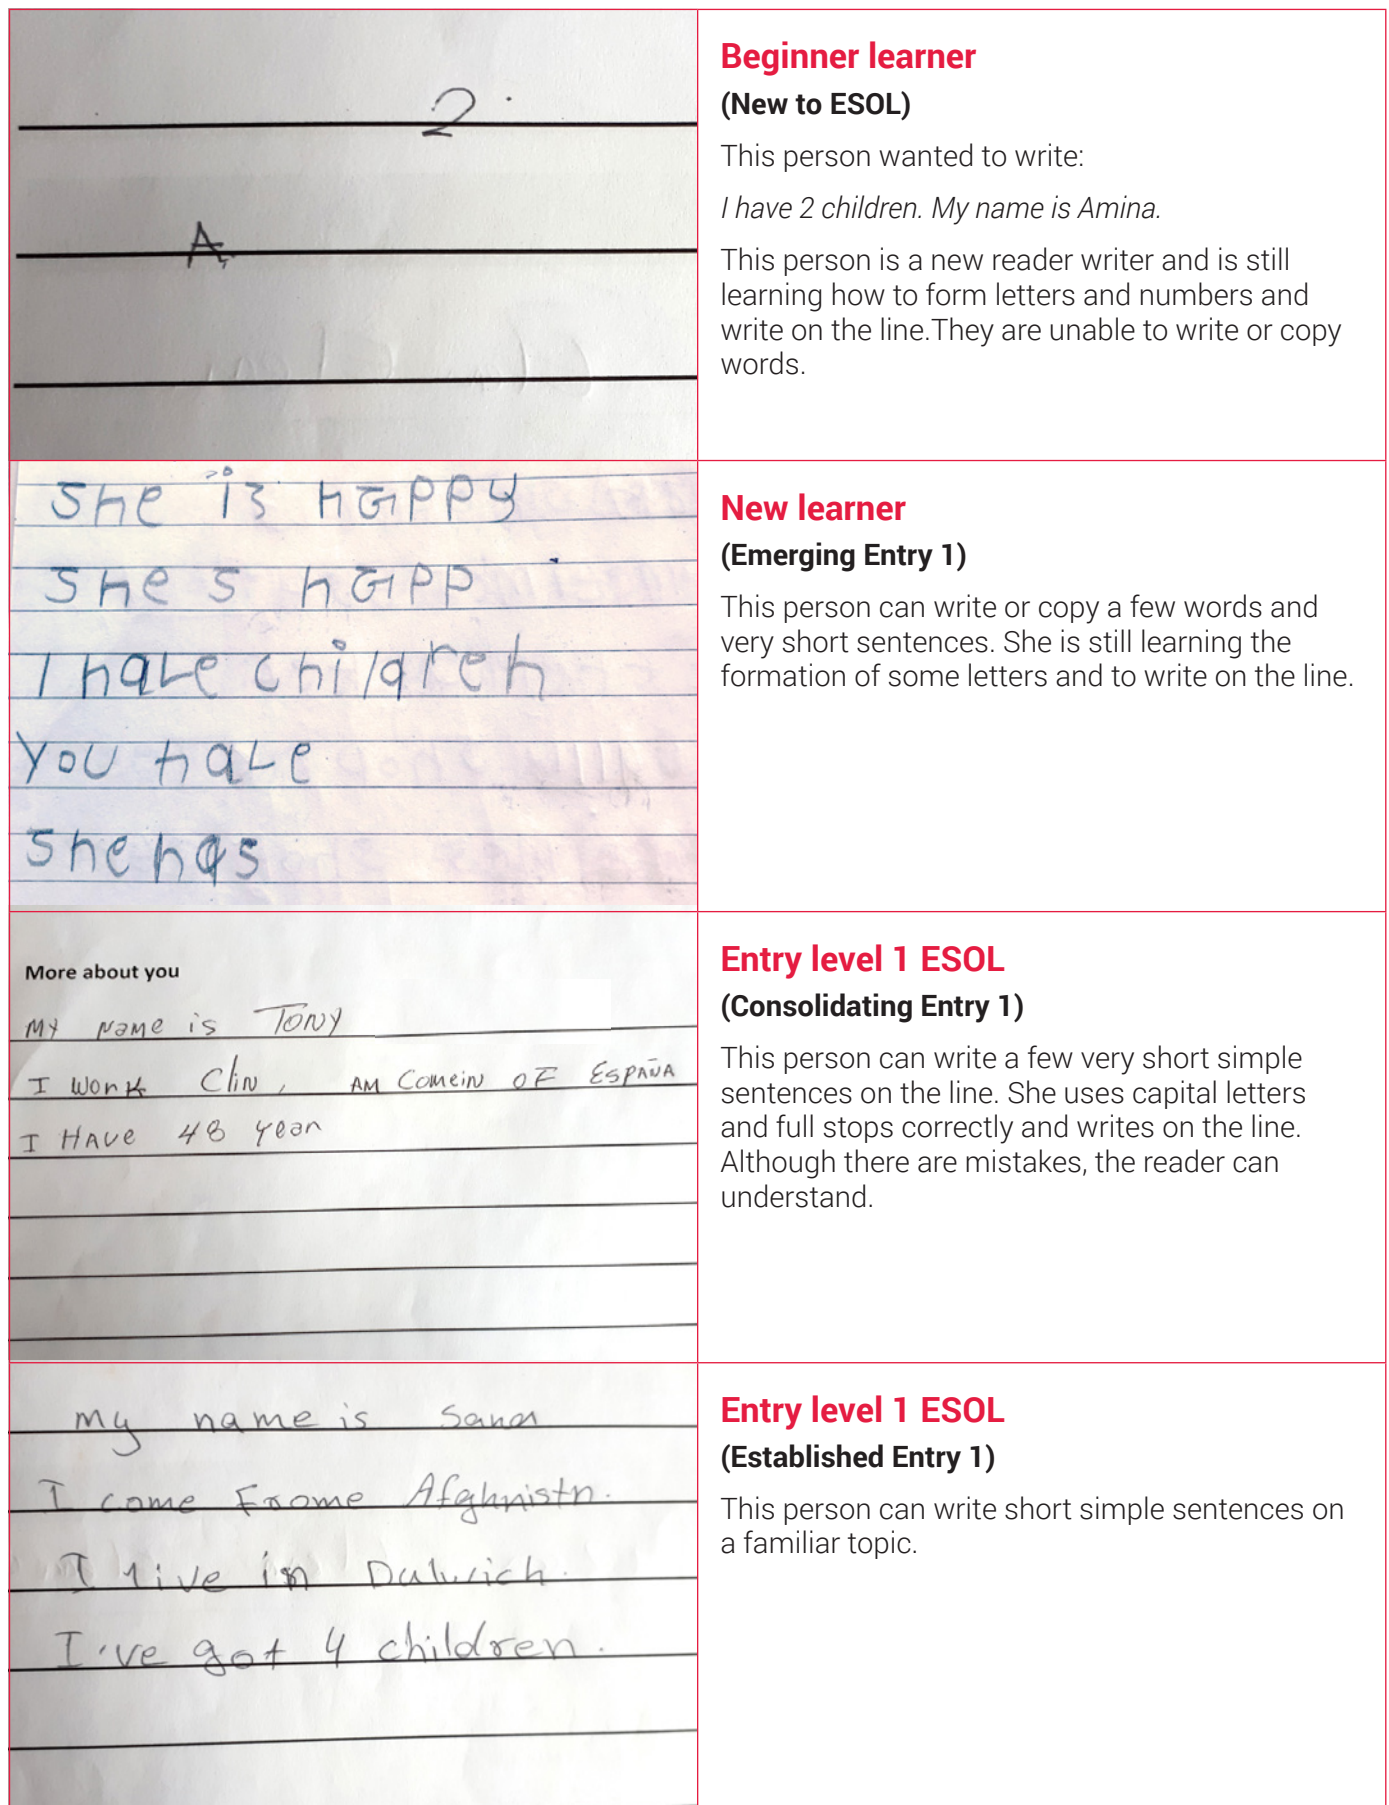 2
A
Beginner learner
(New to ESOL)
This person wanted to write:
I have 2 children. My name is Amina.
This person is a new reader writer and is still
learning how to form letters and numbers and
write on the line.They are unable to write or copy
words.
She is happy
She s happ
I have children
You have
She has
New learner
(Emerging Entry 1)
This person can write or copy a few words and
very short sentences. She is still learning the
formation of some letters and to write on the line.
More about you
My Name is TONY
I Work Clin, AM Comein OF ESPAÑA
I HAVE 48 year
Entry level 1 ESOL
(Consolidating Entry 1)
This person can write a few very short simple
sentences on the line. She uses capital letters
and full stops correctly and writes on the line.
Although there are mistakes, the reader can
understand.
my name is Sana
I come Frome Afghnistn.
I live in Dulwich.
I've got 4 children.
Entry level 1 ESOL
(Established Entry 1)
This person can write short simple sentences on
a familiar topic.